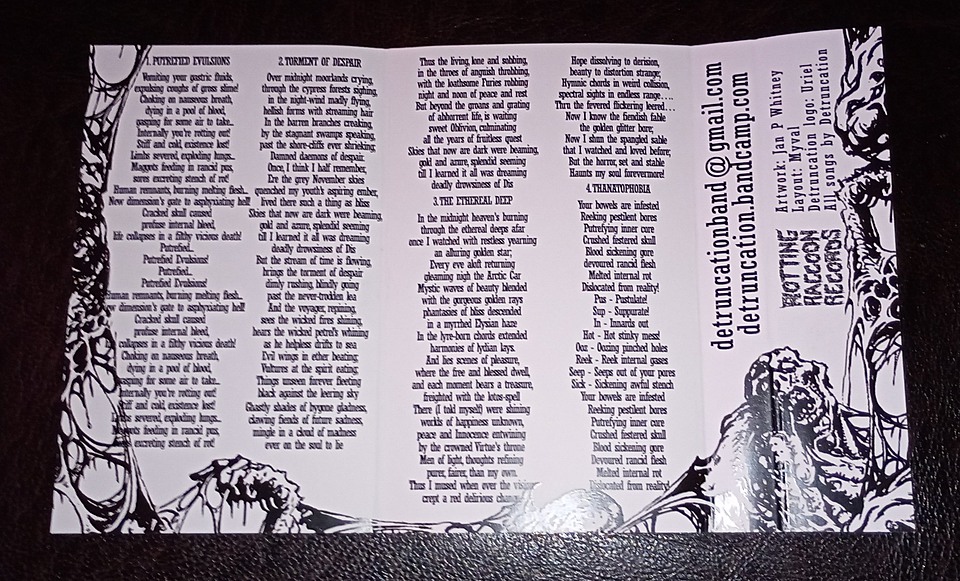 1. PUTREFIED EVULSIONS
Vomiting your gastric fluids,
expulsing coughs of gross slime!
Choking on nauseous breath,
dying in a pool of blood,
gasping for some air to take...
Internally you're rotting out!
Stiff and cold, existence lost!
Limbs severed, exploding lungs...
Maggots feeding in rancid pus,
sores excreting stench of rot!
Human remnants, burning melting flesh...
New dimension's gate to asphyxiating hell!
Cracked skull caused
profuse internal bleed,
life collapses in a filthy vicious death!
Putrefied...
Putrefied Evulsions!
Putrefied...
Putrefied Evulsions!
Human remnants, burning melting flesh...
dimension's gate to asphyxiating hell!
Cracked skull caused
profuse internal bleed,
collapses in a filthy vicious death!
Choking on nauseous breath,
dying in a pool of blood,
gasping for some air to take...
Internally you're rotting out!
Stiff and cold, existence lost!
Limbs severed, exploding lungs...
Maggots feeding in rancid pus,
excreting stench of rot!
2. TORMENT OF DESPAIR
Over midnight moorlands crying,
through the cypress forests sighing,
in the night-wind madly flying,
hellish forms with streaming hair
In the barren branches creaking,
by the stagnant swamps speaking,
past the shore-cliffs ever shrieking;
Damned daemons of despair.
Once, I think I half remember,
Ere the grey November skies
quenched my youth's aspiring ember,
lived there such a thing as bliss
Skies that now are dark were beaming,
gold and azure, splendid seeming
till I learned it all was dreaming
deadly drowsiness of Dis
But the stream of time is flowing,
brings the torment of despair
dimly rushing, blindly going
past the never-trodden lea
And the voyager, repining,
sees the wicked fires shining,
hears the wicked petrel's whining
as he helpless drifts to sea
Evil wings in ether beating;
Vultures at the spirit eating;
Things unseen forever fleeting
black against the leering sky
Ghastly shades of bygone gladness,
clawing fiends of future sadness,
mingle in a cloud of madness
ever on the soul to lie
Thus the living, lone and sobbing,
in the throes of anguish throbbing,
with the loathsome Furies robbing
night and noon of peace and rest
But beyond the groans and grating
of abhorrent life, is waiting
sweet Oblivion, culminating
all the years of fruitless quest
Skies that now are dark were beaming,
gold and azure, splendid seeming
till I learned it all was dreaming
deadly drowsiness of Dis
3. THE ETHEREAL DEEP
In the midnight heaven's burning
through the ethereal deeps afar
once I watched with restless yearning
an alluring golden star;
Every eve aloft returning
gleaming nigh the Arctic Car
Mystic waves of beauty blended
with the gorgeous golden rays
phantasies of bliss descended
in a myrrhed Elysian haze
In the lyre-born chords extended
harmonies of lydian lays.
And lies scenes of pleasure,
where the free and blessed dwell,
and each moment bears a treasure,
freighted with the lotos-spell
There (I told myself) were shining
worlds of happiness unknown,
peace and Innocence entwining
by the crowned Virtue's throne
Men of light, thoughts refining
purer, fairer, than my own.
Thus I mused when over the vision
crept a red delirious change
Hope dissolving to derision,
beauty to distortion strange;
Hymnic chords in weird collision,
spectral sights in endless range....
Thru the fevered flickering leered...
Now I know the fiendish fable
the golden glitter bore;
Now I shun the spangled sable
that I watched and loved before;
But the horror, set and stable
Haunts my soul forevermore!
4. THANATOPHOBIA
Your bowels are infested
Reeking pestilent bores
Putrefying inner core
Crushed festered skull
Blood sickening gore
devoured rancid flesh
Melted internal rot
Dislocated from reality!
Pus - Pustulate!
Sup - Suppurate!
In - Innards out
Hot - Hot stinky mess!
Ooz - Oozing pinched holes
Reek - Reek internal gases
Seep - Seeps out of your pores
Sick - Sickening awful stench
Your bowels are infested
Reeking pestilent bores
Putrefying inner core
Crushed festered skull
Blood sickening gore
Devoured rancid flesh
Melted internal rot
Dislocated from reality!
detruncationband@gmail.com
detruncation.bandcamp.com
ROTTING
RACCOON
RECORDS
Artwork: Ian P Whitney
Layout: Myval
Detruncation logo: Uriel
All songs by Detruncation